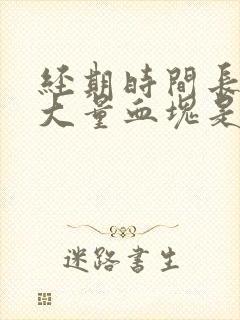 經期時間長
大量血塊是
迷路書生